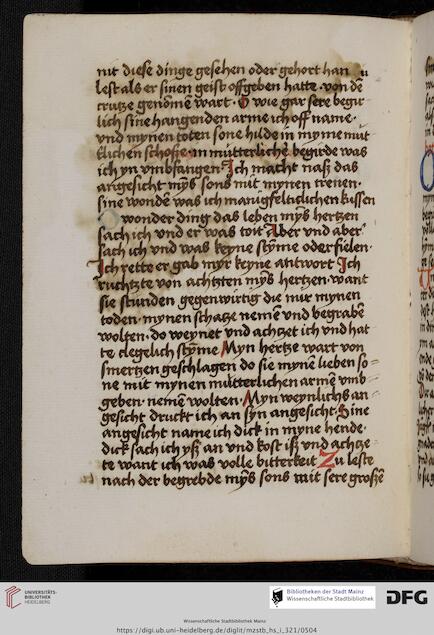 nit diese dinge gesehen oder gehort han u
lest als er sinen geist offgeben hatte · von dē
crutze genōmē wart · O wie gar sere begir
lich sine hangenden arme ich off name ·
vnd mynen toten sone hilde in myme mut
tlichen schosze · in mütterlichē begirde was
ich yn vmbfangen · Ich macht nasz das
angesicht mȳs sons mit mynen trenen ·
sine wondē was ich manigfelticlichen kussen
O wonder ding das leben mȳs hertzen
sach ich vnd er was toit Aber vnd aber
sach ich vnd was keyne stȳme oder fielen ·
Ich rette er gab myr keyne antwort Ich
ruchtzte von achtzten mȳs hertzen · want
sie stunden gegenwirtig die mir mynen
toden · mynen schatze nemen vnd begrabē
wolten · do weynet vnd achtzet ich vnd hat
te clegelich stȳme Myn hertze wart von
smertzen geschlagen do sie mynē lieben so
ne mit mynen mütterlichen armē vmb
geben · nemē wolten · Myn weynlichs an
gesicht druckt ich an syn angesicht · Sine
angesicht name ich dick in myne hende ·
dick sach ich ysz an vnd kost isz vnd achtze
te want ich was volle bitterkeit Zu leste
nach der begrebde mȳs sons mit sere groszē
UNIVERSITÄTS-
BIBLIOTHEK
HEIDELBERG
Bibliotheken der Stadt Mainz
Wissenschaftliche Stadtbibliothek
DFG
Wissenschaftliche Stadtbibliothek Mainz
https://digi.ub.uni-heidelberg.de/diglit/mzstb_hs_i_321/0504